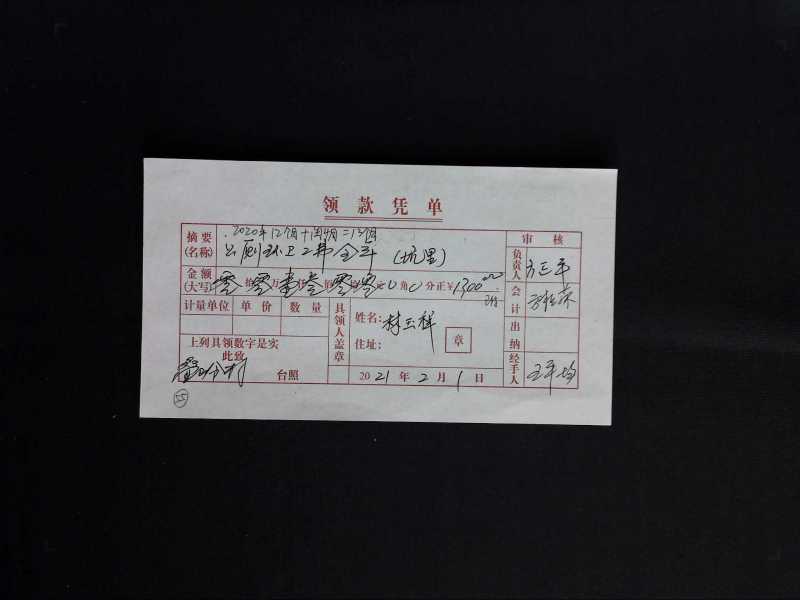 领款凭单
摘要(名称) 2020年12个月+闰4月=13个月
公厕环卫工费全年 (坑里) 审核
金额(大写) 零 拾 零 万 壹 仟 叁 佰 零 拾 零 元 0 角 0 分正 ¥1300.00
负责人 方三平
计量单位 单价 数量
具领人盖章 姓名: 林三祥
住址: 章
会计
出纳
上列具领数字是实
此致
台照
2021年2月1日
经手人 王平均
15